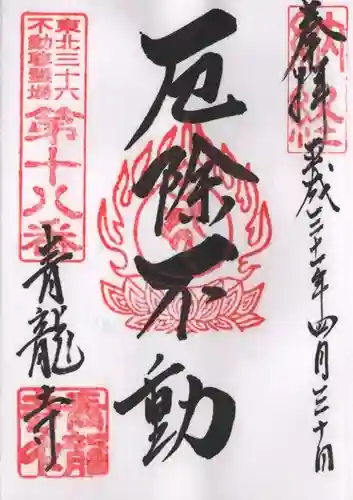 奉拝
平成三十一年四月三十日
厄除不動
東北三十六
不動尊霊場
第十八番
青龍寺